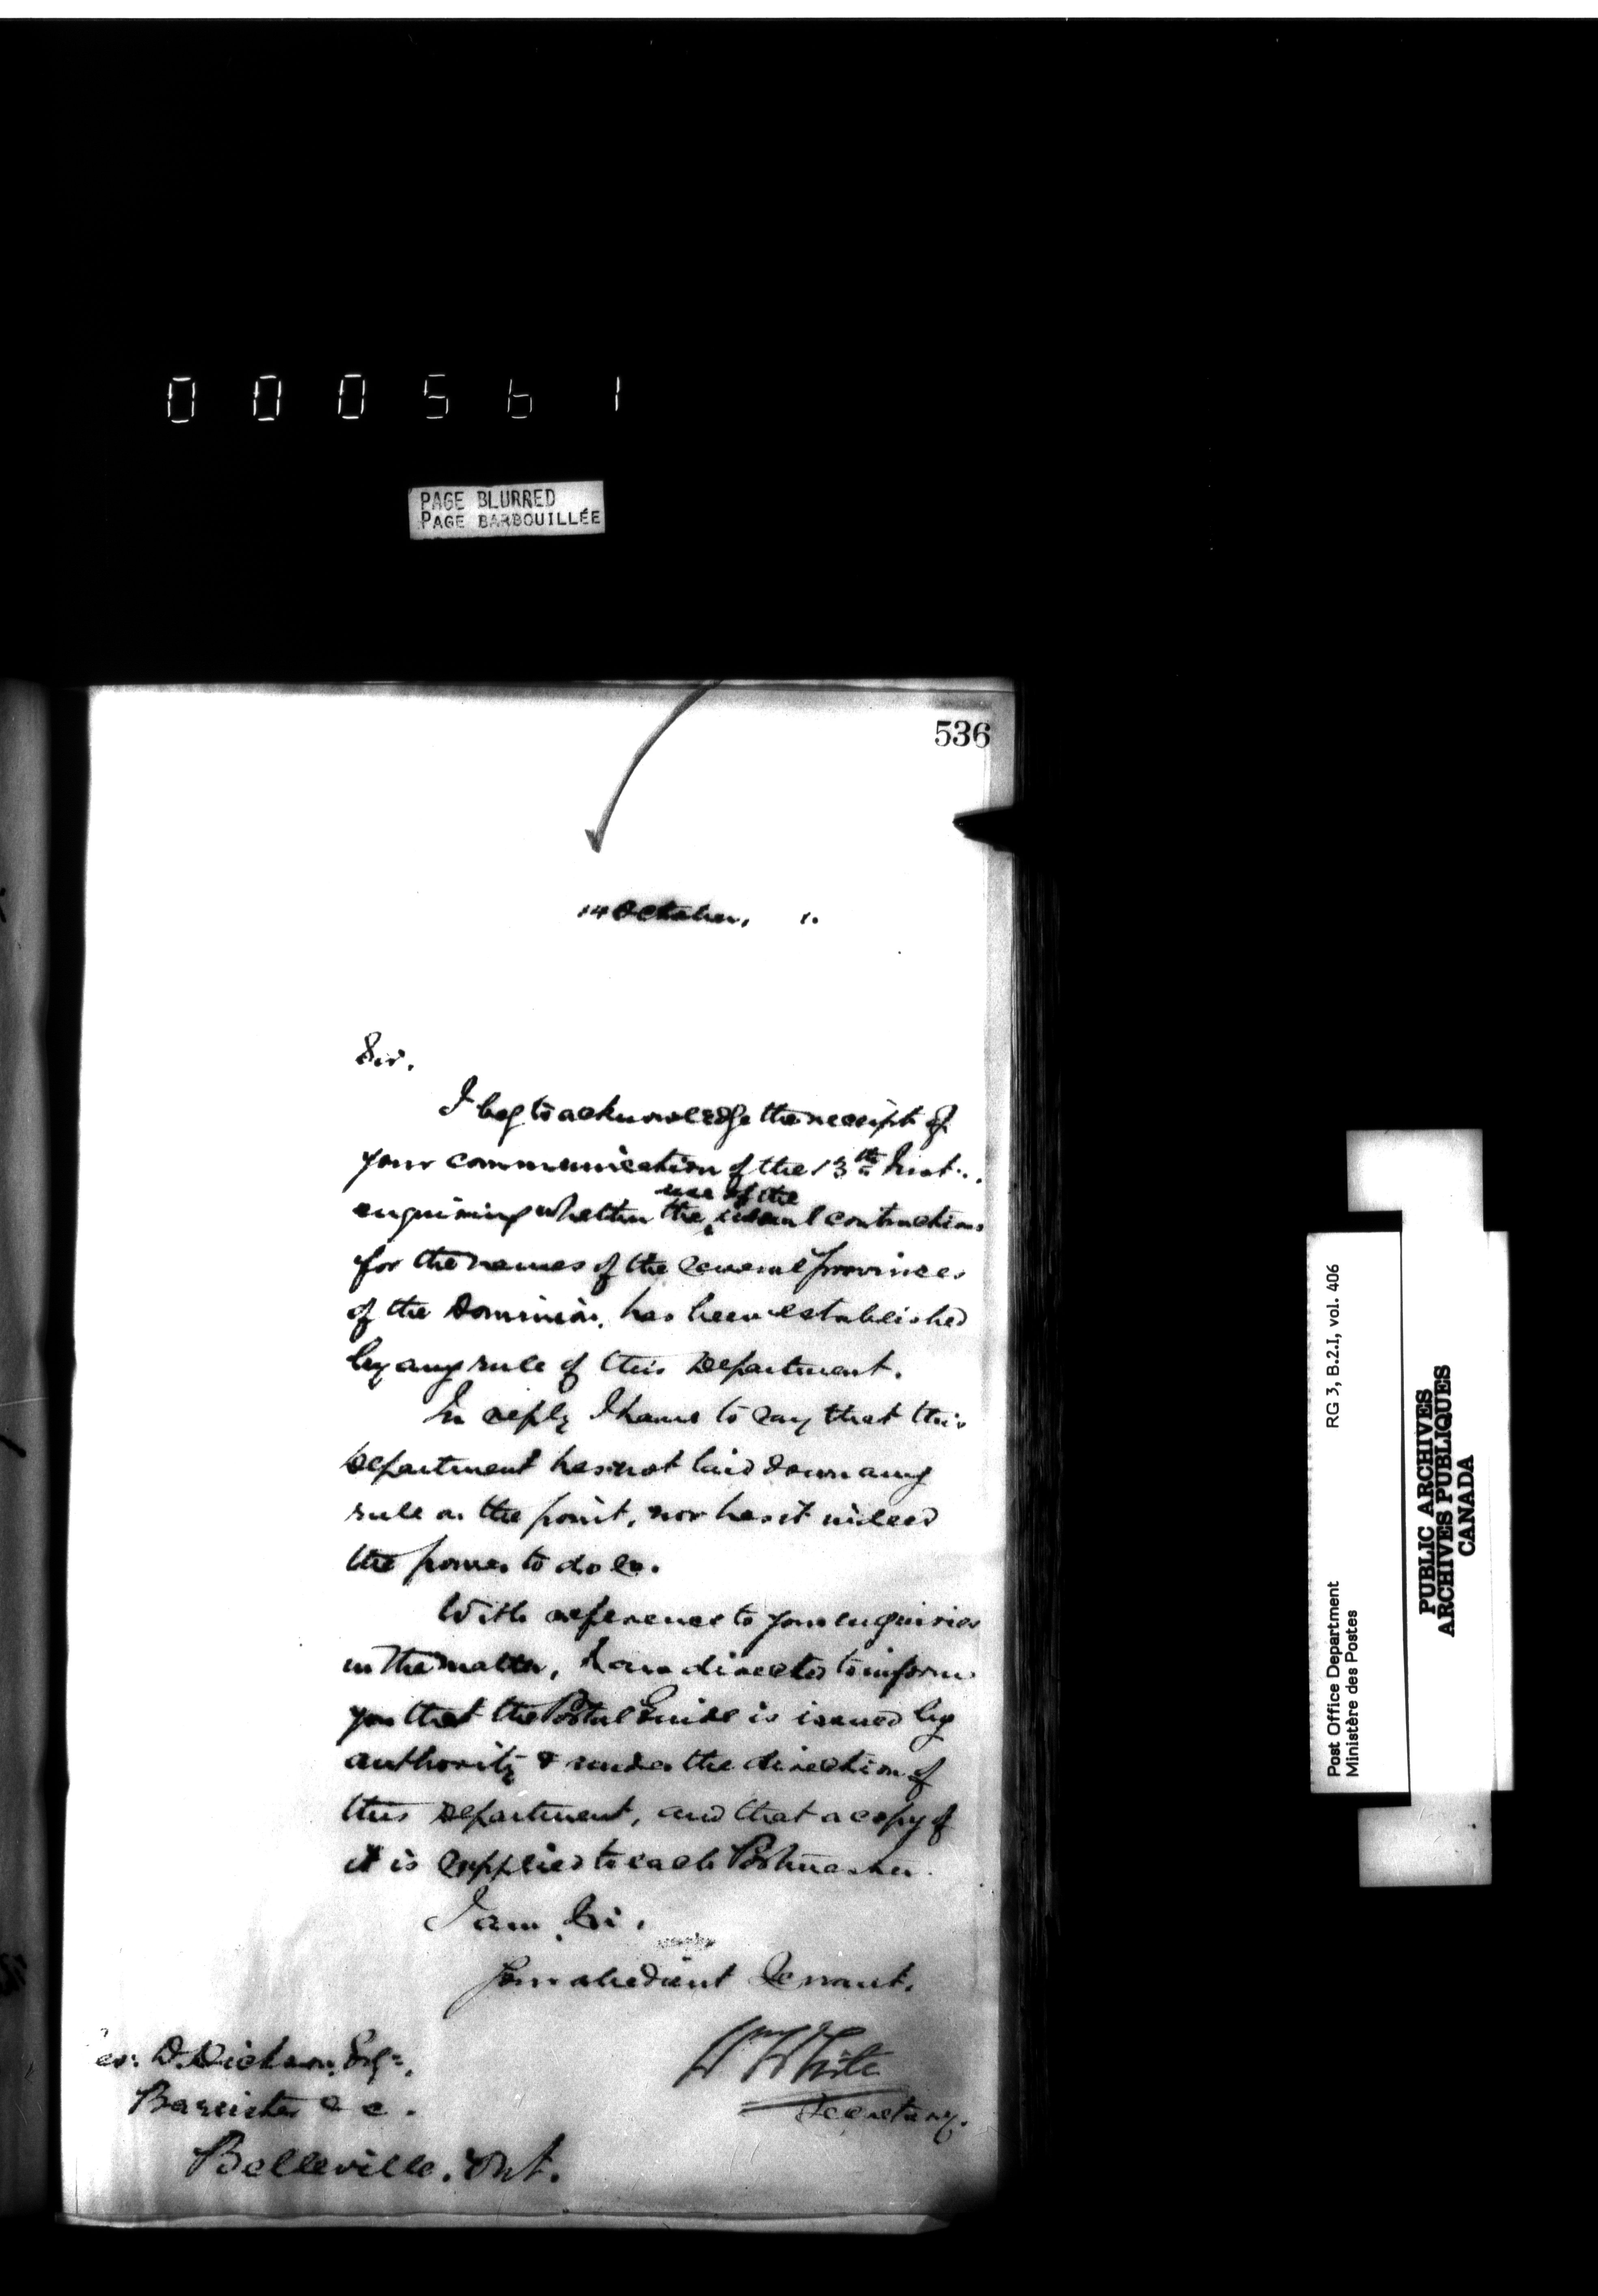 000561
PAGE BLURRED
PAGE BARBOUILLÉE
536
14 October, 1.
Sir.
I beg to acknowledge the receipt of
your communication of the 13th Inst.
use of the
enquiring whether the usual contractions
for the names of the several provinces
of the Dominion, has been established
by any rule of this Department.
In reply I have to say that this
Department has not laid down any
rule on the point, nor has it indeed
the power to do so.
With reference to your enquiries
in the matter, I am directed to inform
you that the Postal Guide is issued by
authority & under the direction of
this Department, and that a copy of
it is supplied to each Postmaster.
I am, Sir,
Your obedient Servant.
Wm White
Secretary.
D. Dickson, Esq.,
Barrister &c.
Belleville. Ont.
Post Office Department
Ministère des Postes
RG 3, B.2.I, vol. 406
PUBLIC ARCHIVES
ARCHIVES PUBLIQUES
CANADA